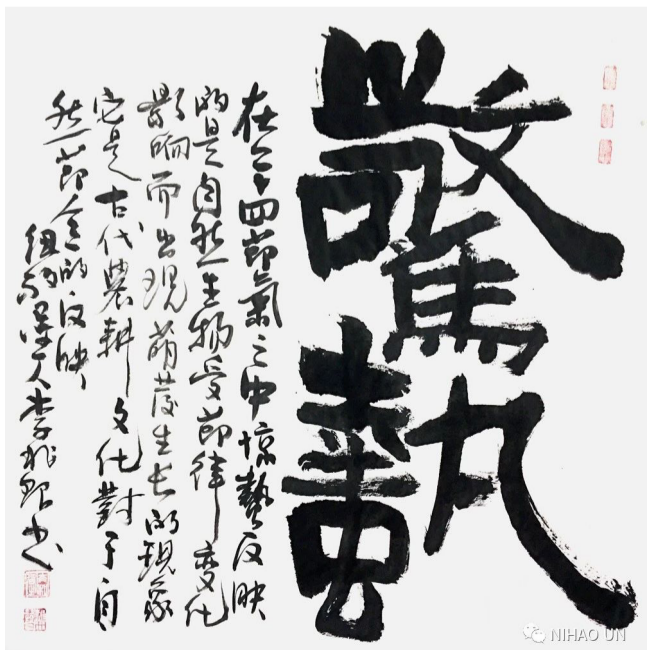 驚蟄
在二十四節氣之中惊蟄反映
的是自然生物受節律变化
影响而出現萌發生长的現象
它是古代農耕文化對于自
然節令的反映
紐約漢人李兆銀书
NIHAO UN